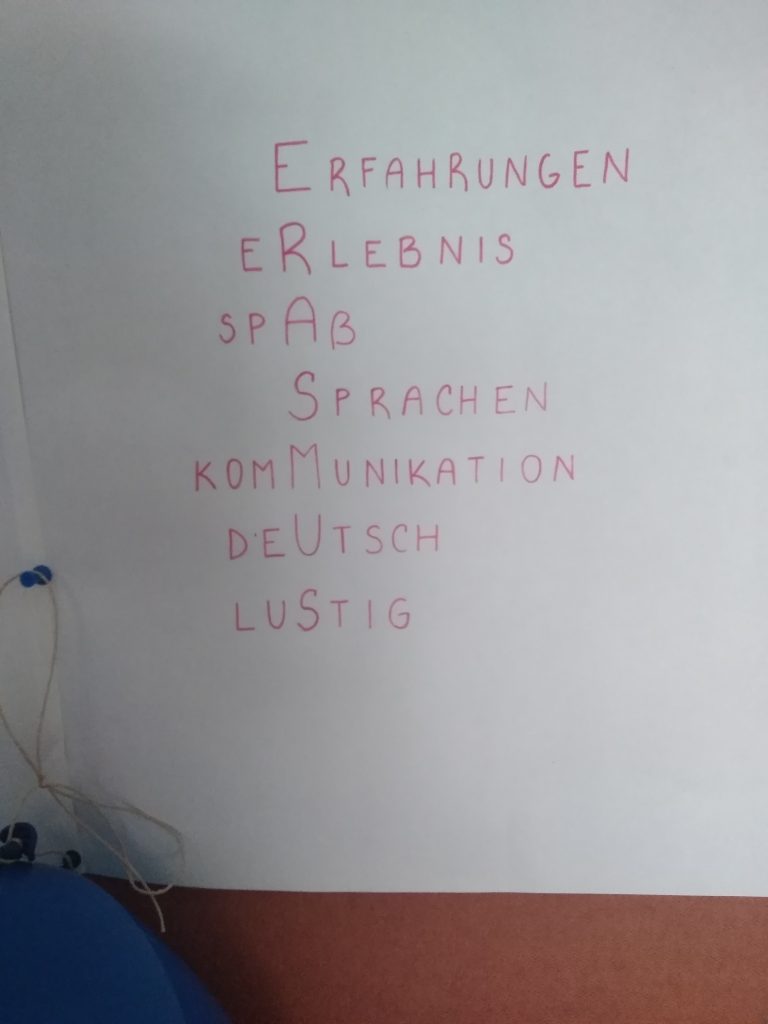 ERFAHRUNGEN
eRLEBNIS
SPAß
SPRACHEN
KOMMUNIKATION
DEUTSCH
LUSTIG